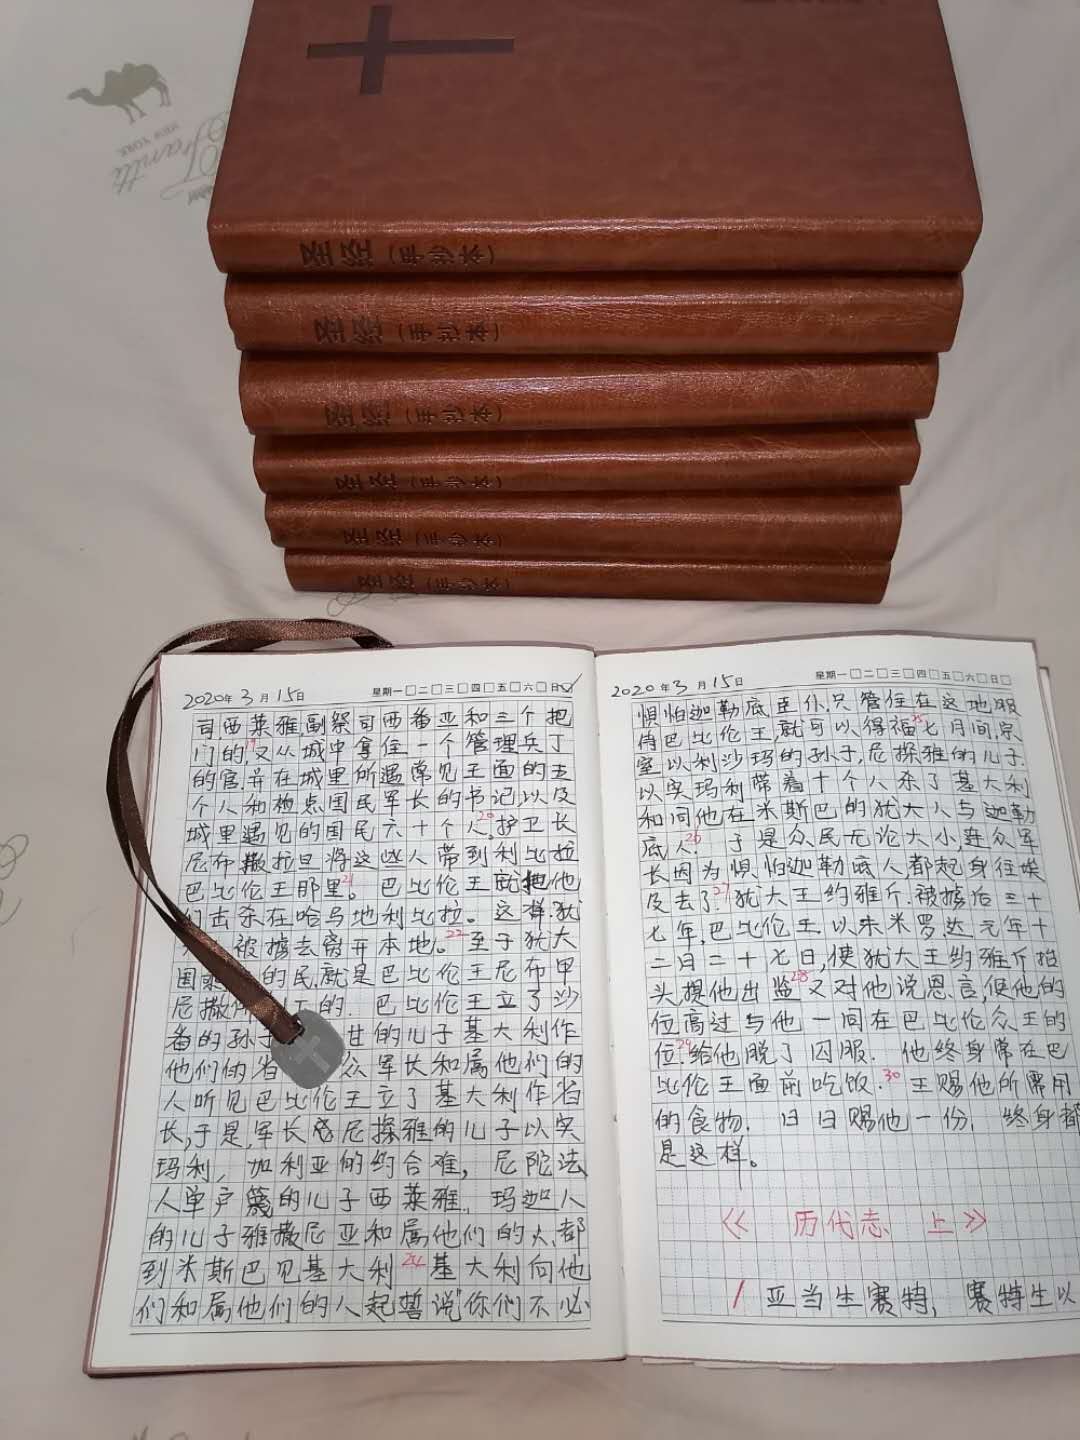 NEW YORK
圣经(手抄本)
圣经(手抄本)
圣经(手抄本)
圣经(手抄本)
圣经(手抄本)
圣经(手抄本)
2020年3月15日 星期一□二□三□四□五□六□日☑
司,西莱雅,副祭司西番亚和三个把
门的,19又从城中拿住一个管理兵丁
的官.并在城里所遇常见王面的五
个人和检点国民军长的书记以及
城里遇见的国民六十个人.20护卫长
尼布撒拉旦将这些人带到利比拉
巴比伦王那里.21 巴比伦王就把他
们击杀在哈马地利比拉。这样.犹
被掳去离开本地。22至于犹大
国 的民.就是巴比伦王尼布甲
尼撒所 下的.巴比伦王立了沙
番的孙子 甘的儿子基大利作
他们的省 众军长和属他们的
人听见巴比伦王立了基大利作省
长,于是,军长 尼探雅的儿子以实
玛利, 加利亚的约合难, 尼陀法
人单户篾的儿子西莱雅. 玛迦人
的儿子雅撒尼亚和属他们的人.都
到米斯巴见基大利24基大利向他
们和属他们的人起誓说"你们不必
2020年3月15日 星期一□二□三□四□五□六□日□
惧怕迦勒底臣仆.只管住在这地服
侍巴比伦王,就可以得福25七月间,宗
室以利沙玛的孙子,尼探雅的儿子.
以实玛利带着十个人来了基大利
和同他在米斯巴的犹大人与迦勒
底人.26 于是众民无论大小,连众军
长因为惧怕迦勒底人,都起身往埃
及去了.27犹大王约雅斤.被掳后三十
七年,巴比伦王.以未米罗达元年十
二月二十七日,使犹大王约雅斤抬
头提他出监28又对他说恩言,使他的
位高过与他一同在巴比伦众王的
位.29给他脱了囚服. 他终身常在巴
比伦王面前吃饭.30王赐他所需用
的食物. 日日赐他一份, 终身都
是这样。
《 历代志 上》
1 亚当生赛特, 赛特生以